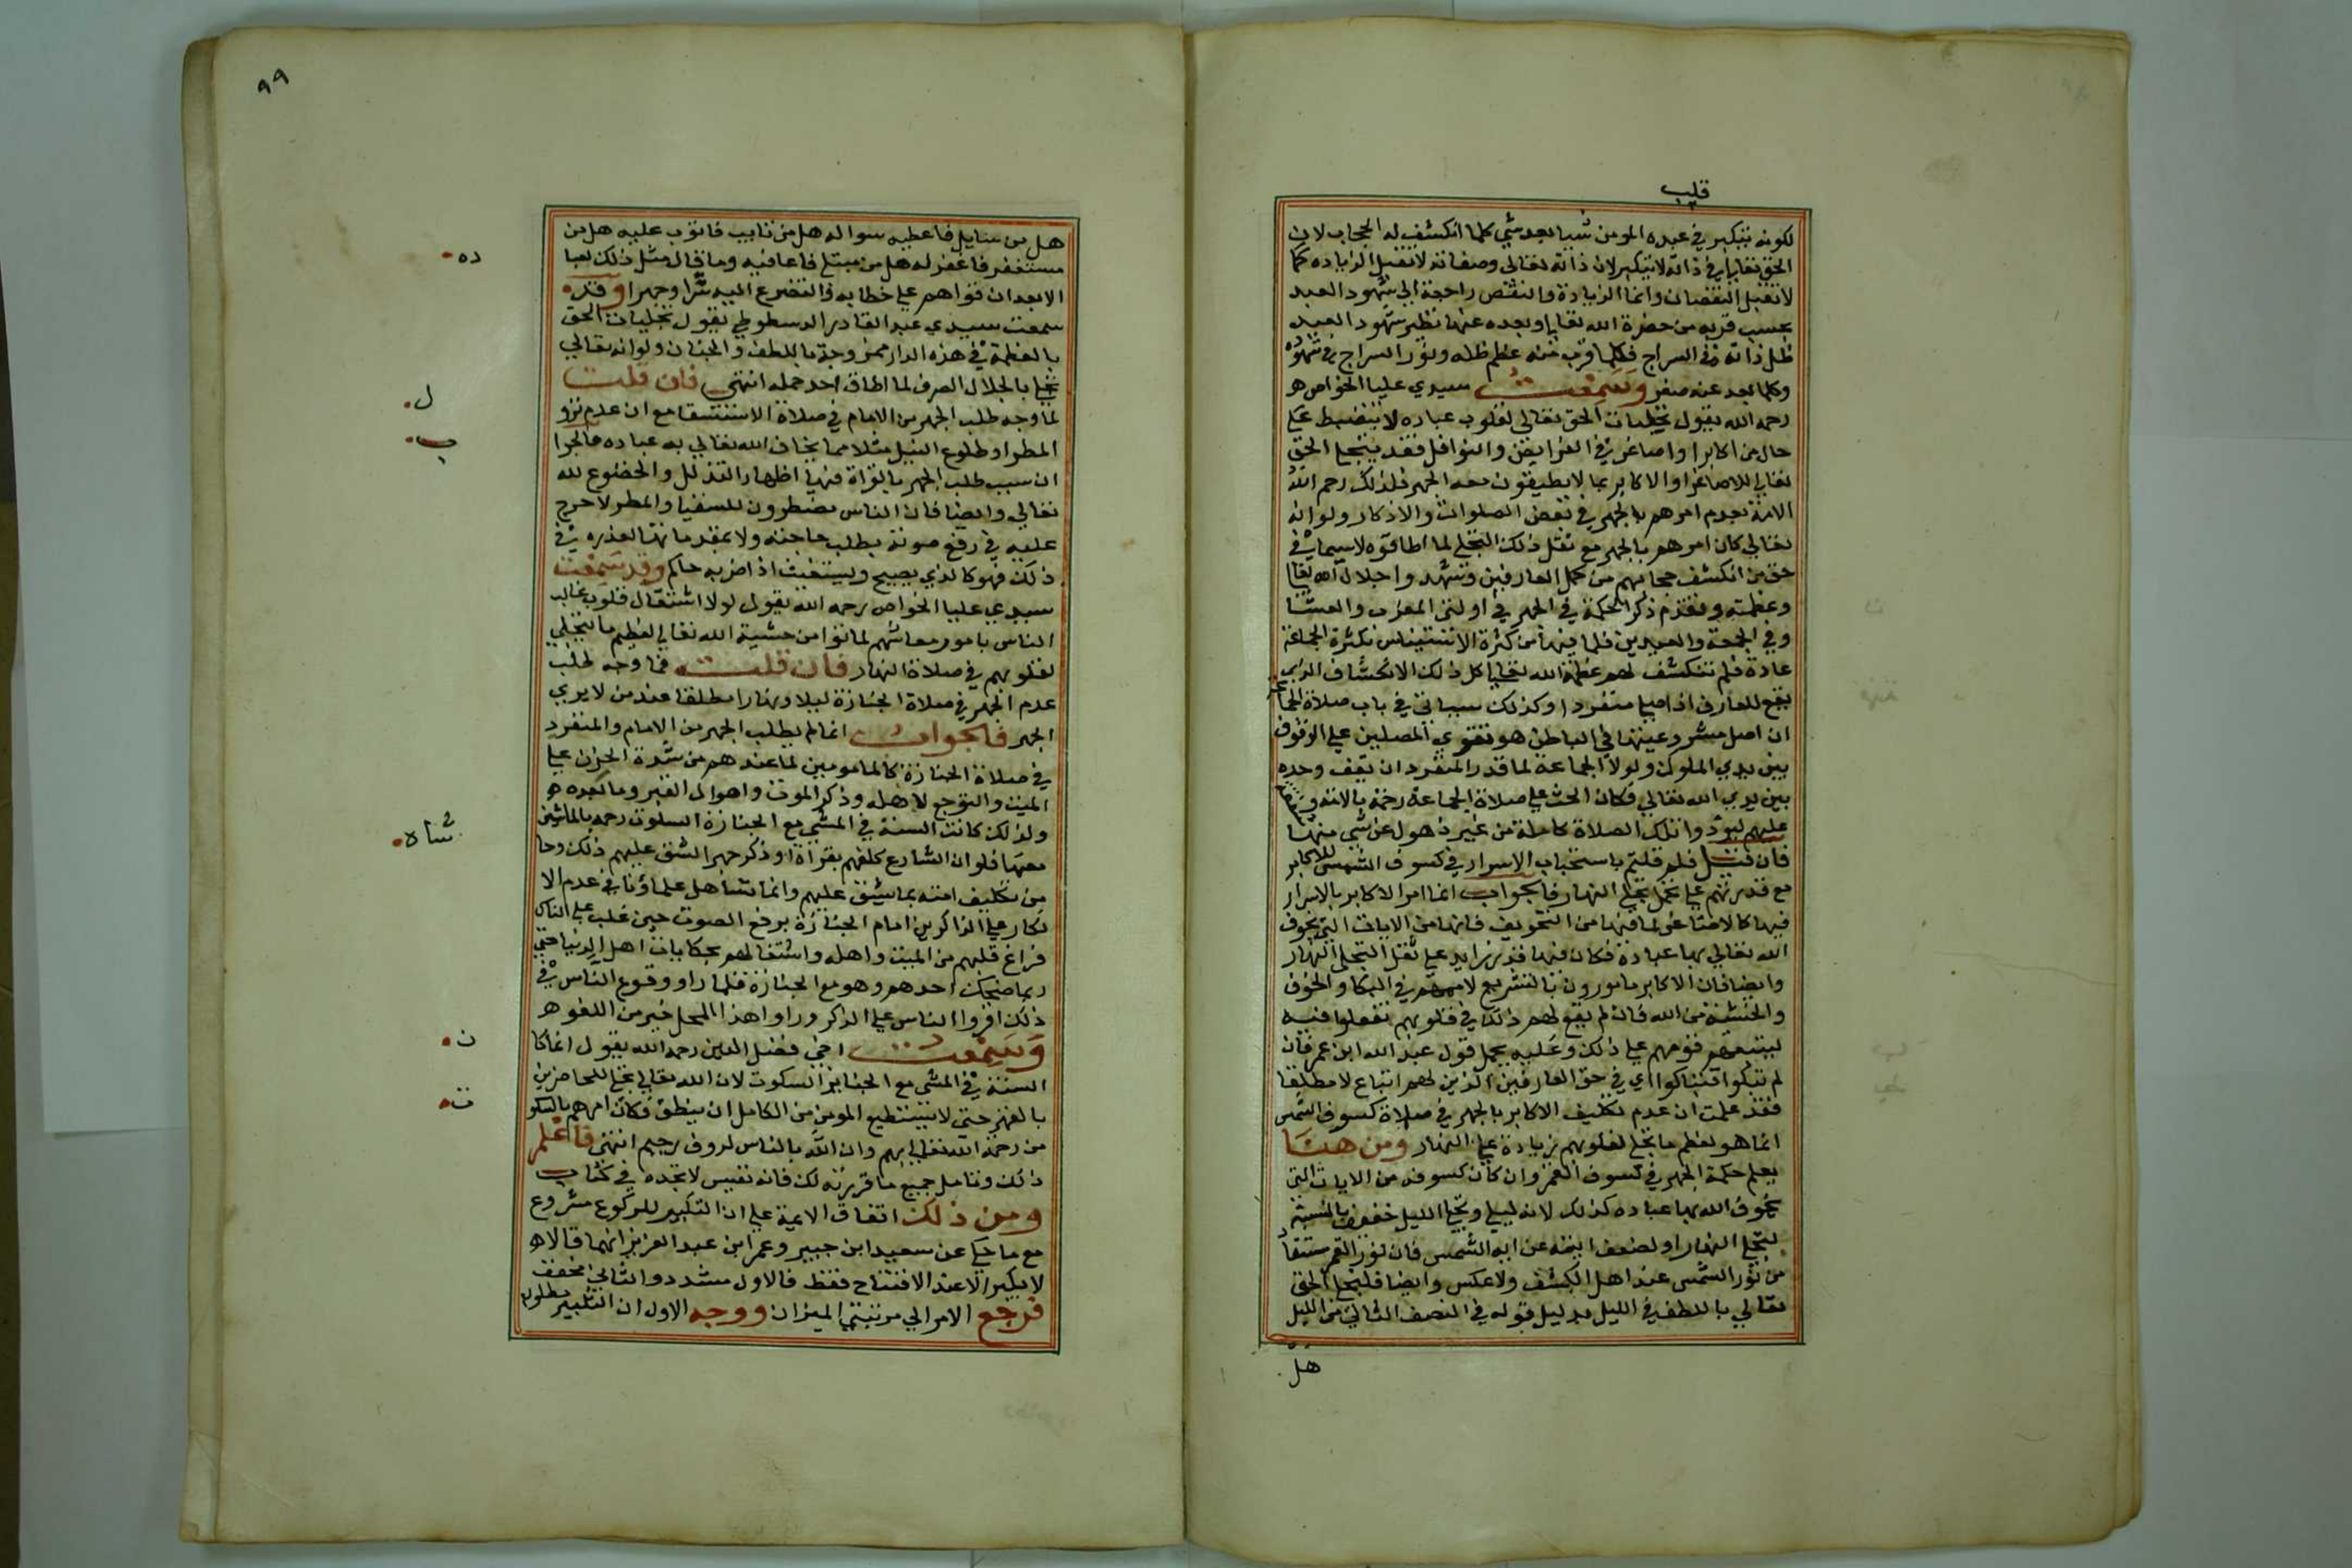 قلب
لكونه يتكبر في عبده المومن شيا بعد شي كلما انكشف له الحجاب لان
الحق تعالى في ذاته لا يتكبر لان ذاته تعالى وصفاته لا تقبل الزياده كما
لا تقبل النقصان وانما الزيادة والنقص راجعة الى شهود العبد
بحسب قربه من حضرة الله تعالى وبعده عنها نظير شهود العبد
ظل ذاته في السراج فكلما قرب منه عظم ظله ونور السراج في شهوده
وكلما بعد عنه صغر وسمعت سيدي عليا الخواص
رحمه الله يقول تجليات الحق تعالى لقلوب عباده لا تنضبط على
حال من اكابر واصاغر في الفرايض والنوافل فقد يتجلى الحق
تعالى للاصاغر او الاكابر بما لا يطيقون معه الجهر فلذلك رحم الله
الامة بعدم امرهم بالجهر في بعض الصلوات والاذكار ولو انه
تعالى كان امرهم بالجهر مع ثقل ذلك التجلي لما اطاقوه لا سيما في
حق من انكشف حجابهم من كمل العارفين وشهد واجلال الله تعا
وعظمته وتقدم ذكر الحكمة في الجهر في اولتي المغرب والعشا
وفي الجمعة والعيدين فلما فيها من كثرة الاستيناس بكثرة الجماعة
عادة فلم تنكشف لهم عظمة الله تعالى كل ذلك الانكشاف الذي
يقع للعارف اذا صلى منفردا وكذلك سياتي في باب صلاة الجما
ان اصل مشروعيتها في الباطن هو تقوي المصلين على الوقوف
بين يدي الملوك ولولا الجماعة لما قدر المنفرد ان يقف وحده
بين يدي الله تعالى فكان الحث على صلاة الجماعة رحمة بالامة و
عليهم ليودوا تلك الصلاة كاملة من غير ذهول عن شي منها
فان قيل فلم قلتم باستحباب الاسرار في كسوف الشمس للاكابر
مع قدرتهم على تحمل تجلي النهار فالجواب انما امر الاكابر بالاسرار
فيها كالاصاغر لما فيها من التخويف فانها من الايات التي يخوف
الله تعالى بها عباده فكان فيها قدر زايد على ثقل التجلي النهار
وايضا فان الاكابر مامورون بالتشريع لاممهم في البكا والخوف
والخشية من الله فان لم يقع لهم ذلك في قلوبهم تفعلوا فيه
ليتبعهم قومهم على ذلك وعليه يحمل قول عبد الله ابن عمر فان
لم تبكوا فتباكوا اي في حق العارفين الذين لهم اتباع لا مطلقا
فقد علمت ان عدم تكليف الاكابر بالجهر في صلاة كسوف الشمس
انما هو لعظم ما تجلى لقلوبهم زيادة على النهار ومن هنا
يعلم حكمة الجهر في كسوف القمر وان كان كسوفه من الايات التي
يخوف الله بها عباده كذلك لانه ليلي وتجلي الليل خفيف بالنسبة
لتجلي النهار او لضعف ايته عن اية الشمس فان نور القمر مستفاد
من نور الشمس عند اهل الكشف ولا عكس وايضا فليتجلى الحق
تعالى باللطف في الليل بدليل قوله في النصف الثاني من الليل
هل
٩٩
هل من سايل فاعطيه سواله هل من تايب فاتوب عليه هل من
مستغفر فاغفر له هل من مبتلى فاعافيه وما قال مثل ذلك لعبا
ده
الا بعد ان قواهم على خطابه والتضرع اليه سرا وجهرا وقد
سمعت سيدي عبد القادر الدسطوطي يقول تجليات الحق
بالعظمة في هذه الدار ممزوجة باللطف والحنان ولو انه تعالى
تجلى بالجلال الصرف لما اطاق احد حمله انتهى فان قلت
لما وجه طلب الجهر من الامام في صلاة الاستسقا مع ان عدم نزو
ل
المطر او طلوع النيل مثلا مما يخاف الله تعالى به عباده فالجوا
ب
ان سبب طلب الجهر بالقراة فيها اظهار التذلل والخضوع لله
تعالى وايضا فان الناس مضطرون للسقيا والمطر لا حرج
عليه في رفع صوته بطلب حاجته ولا يقدمانها لعذره في
ذلك فهو كالذي يصيح ويستغيث اذا ضربه حاكم وقد سمعت
سيدي عليا الخواص رحمه الله يقول لولا اشتغال قلوب غالب
الناس بامور معاشهم لماتوا من خشية الله تعالى لعظيم ما يتجلى
لقلوبهم في صلاة النهار فان قلت فما وجه طلب
عدم الجهر في صلاة الجنازة ليلا ونهارا مطلقا عند من لا يرى
الجهر فالجواب انما لم يطلب الجهر من الامام والمنفرد
في صلاة الجنازة كالمامومين لما عندهم من شدة الحزن على
الميت والتوجع لاهله وذكر الموت واهوال القبر وما بعده
ولذلك كانت السنة في المشي مع الجنازة السكوت رحمة بالماشين
معها فلو ان الشارع كلفهم بقراة او ذكر جهر الشق عليهم ذلك وحا
شاه
من تكليف امته بما يشق عليهم وانما تساهل علماؤنا في عدم الا
نكار على الذاكرين امام الجنازة برفع الصوت حين غلب على الناس
فراغ قلبهم من الميت واهله واشتغالهم بحكايات اهل الدنيا حتى
ربما ضحك احدهم وهو مع الجنازة فلما راو وقوع الناس في
ذلك اقروا الناس على الذكر وراوا هذا المحل خير من اللغو
وسمعت اخي فضل الدين رحمه الله يقول انما كا
ن
السنة في المشي مع الجنايز السكوت لان الله تعالى يتجلى للحاضرين
بالقهر حتى لا يستطيع المومن الكامل ان ينطق فكان امرهم بالسكو
ت
من رحمة الله تعالى بهم وان الله بالناس لروف رحيم انتهى فاعلم
ذلك وتامل جميع ما قررته لك فانه نفيس لا تجده في كتاب
ومن ذلك اتفاق الايمة على ان التكبير للركوع مشروع
مع ما حكي عن سعيد ابن جبير وعمر ابن عبد العزيز انهما قالا
لا يكبر الا عند الافتتاح فقط فالاول مشدد والثاني مخفف
فرجع الامر الى مرتبتي الميزان ووجه الاول ان التكبير مطلوب